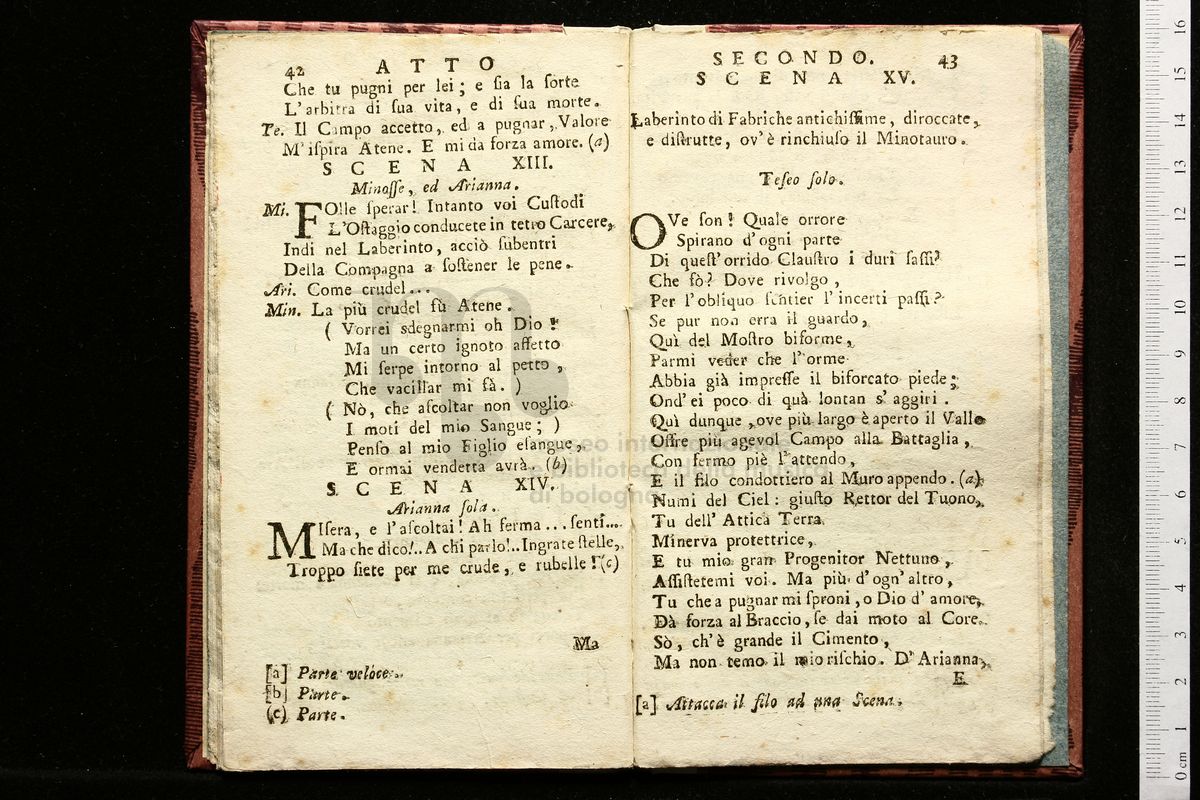 42 ATTO
Che tu pugni per lei; e ſia la ſorte
L'arbitra di ſua vita, e di ſua morte.
Te. Il Campo accetto, ed a pugnar, Valore
M'iſpira Atene. E mi da forza amore. (a)
SCENA XIII.
Minoſſe, ed Arianna.
Mi. FOlle ſperar! Intanto voi Cuſtodi
L'Oſtaggio conducete in tetro Carcere,
Indi nel Laberinto, acciò ſubentri
Della Compagna a ſoſtener le pene.
Ari. Come crudel...
Min. La più crudel fù Atene.
( Vorrei sdegnarmi oh Dio!
Ma un certo ignoto affetto
Mi ſerpe intorno al petto,
Che vacillar mi fà. )
( Nò, che aſcoltar non voglio
I moti del mio Sangue; )
Penſo al mio Figlio eſangue,
E ormai vendetta avrà. (b)
SCENA XIV.
Arianna ſola.
MIſera, e l'aſcoltai! Ah ferma... ſenti...
Ma che dico!.. A chi parlo!.. Ingrate ſtelle,
Troppo ſiete per me crude, e rubelle! (c)
Ma
[a] Parte veloce.
[b] Parte.
(c) Parte.
SECONDO. 43
SCENA XV.
Laberinto di Fabriche antichiſſime, diroccate,
e diſtrutte, ov'è rinchiuſo il Minotauro.
Teſeo ſolo.
OVe ſon! Quale orrore
Spirano d'ogni parte
Di queſt'orrido Clauſtro i duri ſaſſi?
Che fò? Dove rivolgo,
Per l'obliquo ſentier l'incerti paſſi?
Se pur non erra il guardo,
Quì del Moſtro biforme,
Parmi veder che l'orme
Abbia già impreſſe il biforcato piede;
Ond'ei poco di quà lontan s'aggiri.
Quì dunque, ove più largo è aperto il Vallo
Offre più agevol Campo alla Battaglia,
Con fermo piè l'attendo,
E il filo condottiero al Muro appendo. (a)
Numi del Ciel: giuſto Rettor del Tuono,
Tu dell'Attica Terra
Minerva protettrice,
E tu mio gran Progenitor Nettuno,
Aſſiſtetemi voi. Ma più d'ogn'altro,
Tu che a pugnar mi ſproni, o Dio d'amore,
Dà forza al Braccio, ſe dai moto al Core.
Sò, ch'è grande il Cimento,
Ma non temo il mio riſchio. D'Arianna,
E
[a] Attacca il filo ad una Scena.
museo internazionale
e biblioteca della musica
di bologna
0 cm 1 2 3 4 5 6 7 8 9 10 11 12 13 14 15 16